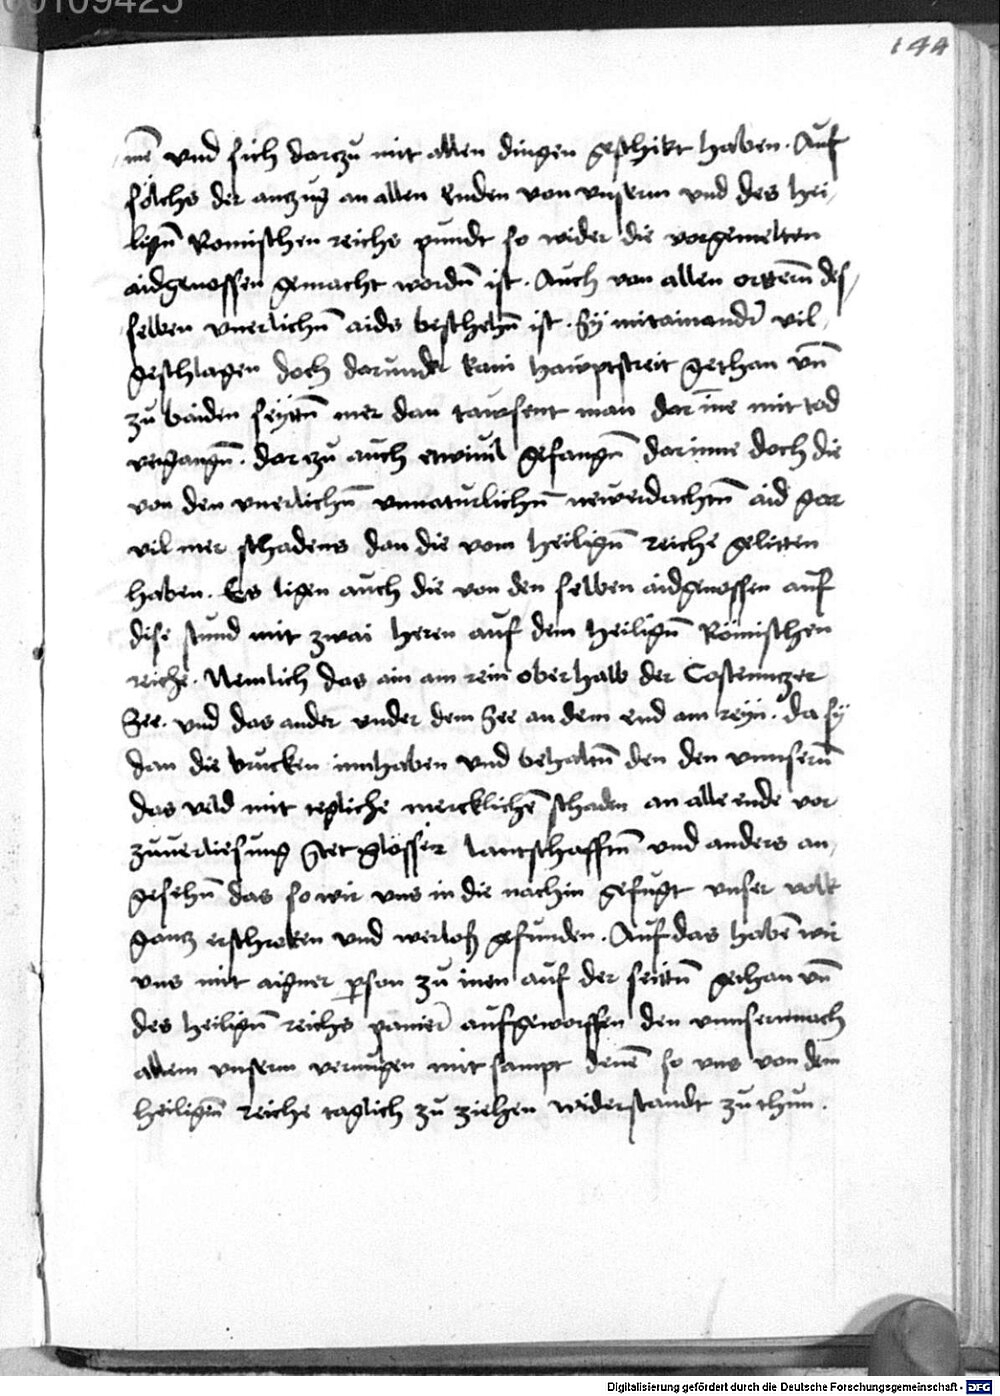 00109425
144
me̅ vnd sich darzu mit allen dingen geschikt haben. Auf
sölchs der anczug an allen enden von vnserm vnd des hei-
lign̅ Romischen reichs pundt so wider die vorgemelten
aidgenossen gemacht wordn̅ ist. Auch von allen des-
selben vnerlichn̅ aids beschehn̅ ist. Sy mitainandr̅ vil
geschlagen doch darundr kain hawptstreit gethan vn̅
zu baiden seyttn̅ mer dan tawsent man dar in̅e mit tod
vergangn̅. darzu auch etwiuil gefangn̅ darinne doch die
von den vnerlichn̅ vnnaturlichn̅ newerdachtn̅ aid gar
vil mer schadens dan die vom heilign̅ reiche gelitten
haben. Es ligen auch die von den selben aidgenossen auf
dise stund mit zwai heren auf dem heilign̅ Römischen
reiche. Nemlich das ain am rein oberhalb der Costenntzer
See. vnd das ander vnder dem See an dem end am reyn. da sy
dan die brucken innhaben vnd behaltn̅ den den vnnsern̅
das veld mit tegliche mercklichen̅ schaden an alle ende vor
zuuerliesung Stet glösser lantschafftn̅ vnd anders an-
gesehn̅ das so wir vns in die nachin gefugt vnser volk
gantz erschroken vnd werloß gefunden. Auf das habe̅ wir
vns mit aigner pson zu inen auf der seittn̅ gethan vn̅
des heilign̅ reichs panier aufgeworffen den vnnsern nach
allem vnserm vermugen mit sampt dene̅ so vns von dem
heilign̅ reiche taglich zu ziehen widerstandt zu thun.
Digitalisierung gefördert durch die Deutsche Forschungsgemeinschaft - DFG